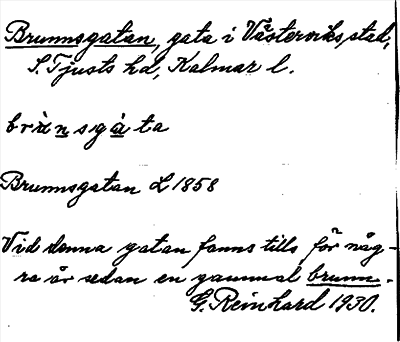 Brunnsgatan, gata i Västerviks stad,
S. Tjusts hd, Kalmar l.
Brunnsgatan L 1858
Vid denna gatan fanns tills för någ-
ra år sedan en gammal brunn.
G. Reinhard 1930.